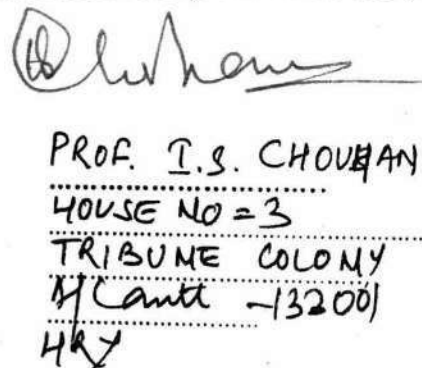 PROF. I.S. CHOUHAN
HOUSE NO = 3
TRIBUME COLOMY
A/Cantt -132001
HRY